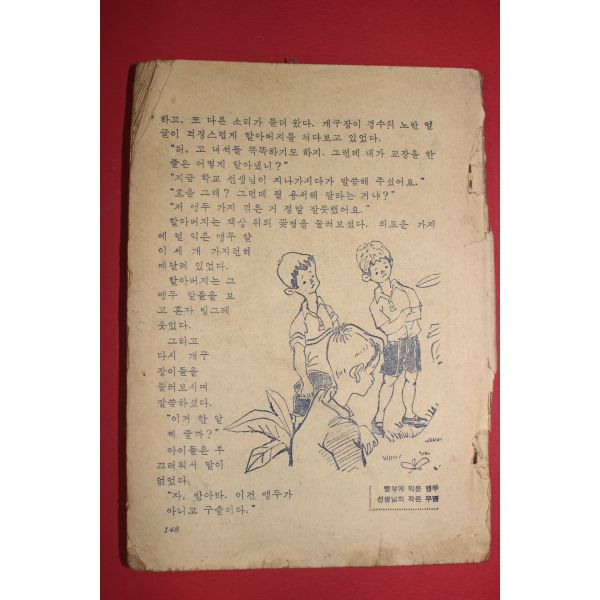 하고, 또 다른 소리가 들려 왔다. 개구장이 경수의 노란 얼
굴이 걱정스럽게 할아버지를 쳐다보고 있었다.
"허, 고 녀석들 똑똑하기도 하지. 그런데 내가 교장을 한
줄은 어떻게 알아냈니?"
"지금 학교 선생님이 지나가시다가 말씀해 주셨어요."
"흐음 그래? 그런데 뭘 용서해 달라는 거냐?"
"저 앵두 가지 꺾은 거 정말 잘못했어요."
할아버지는 책상 위의 꽃병을 둘러보셨다. 외로운 가지
에 덜 익은 앵두 알
이 세 개 가지런히
매달려 있었다.
할아버지는 그
앵두 알들을 보
고 혼자 빙그레
웃었다.
그리고
다시 개구
장이들을
둘러보시며
말씀하셨다.
"이거 한 알
씩 줄까?"
아이들은 부
끄러워서 말이
없었다.
"자, 받아라. 이건 앵두가
아니고 구슬이다."
빨갛게 익은 앵두
선생님의 작은 무덤
148